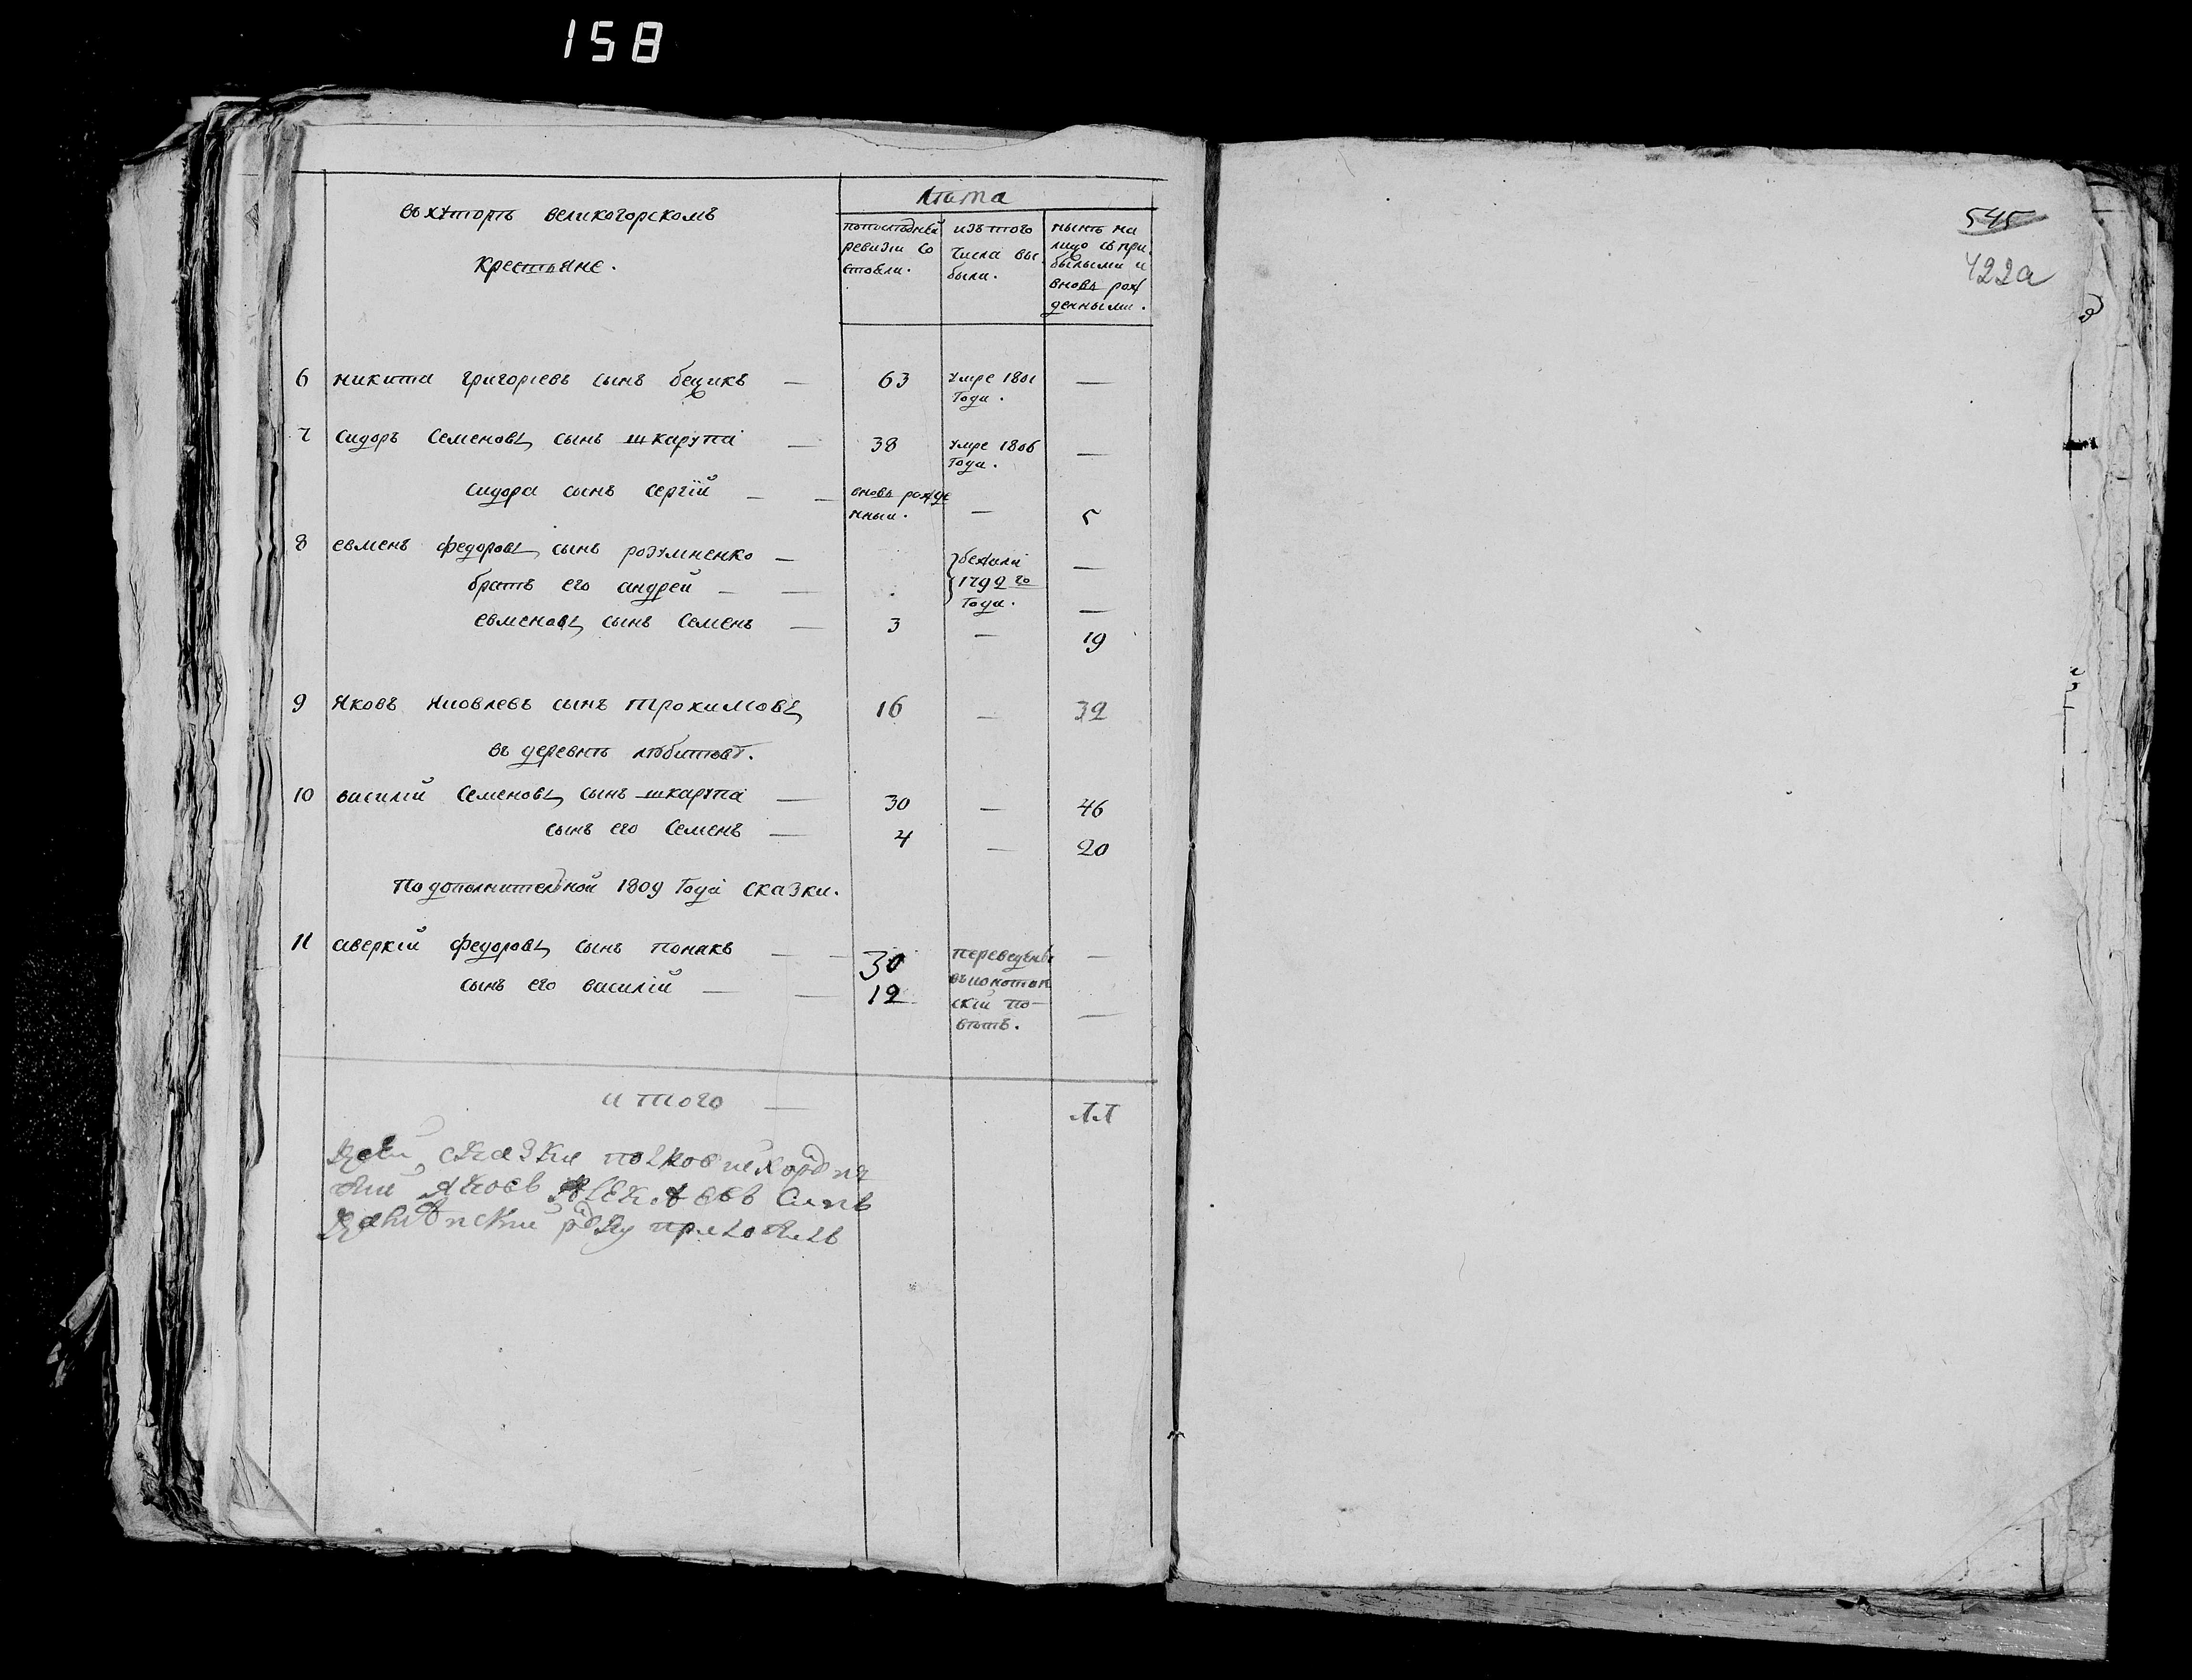 158
545
422а
въ хуторѣ великогорскомъ
крестьяне.
лѣта
по последней ревизіи со стояли.
изъ того числа вы были.
нынѣ на лицо съ при былыми и вновь рож денными.
6 никита григорьевъ сынъ бецикъ — 63 умре 1801 Года. —
7 сидоръ семеновъ сынъ шкарупа — 38 умре 1806 Года. —
сидора сынъ сергій — — вновь рожде нный. — 5
8 евменъ федоровъ сынъ розумненко — бежали 1799 го Года. —
братъ его андрей — — —
евменовъ сынъ семенъ — 3 — 19
9 яковъ яковлевъ сынъ трохимовъ 16 — 32
въ деревнѣ любитовѣ.
10 василій семеновъ сынъ шкарупа — 30 — 46
сынъ его семенъ — 4 — 20
По дополнительной 1809 Года сказки.
11 аверкій федоровъ сынъ понакъ — — 30 переведены въ конотоп скій по- вѣтъ. —
сынъ его василій — — 12 —
итого —
сказки
яковъ синъ
руку приложилъ